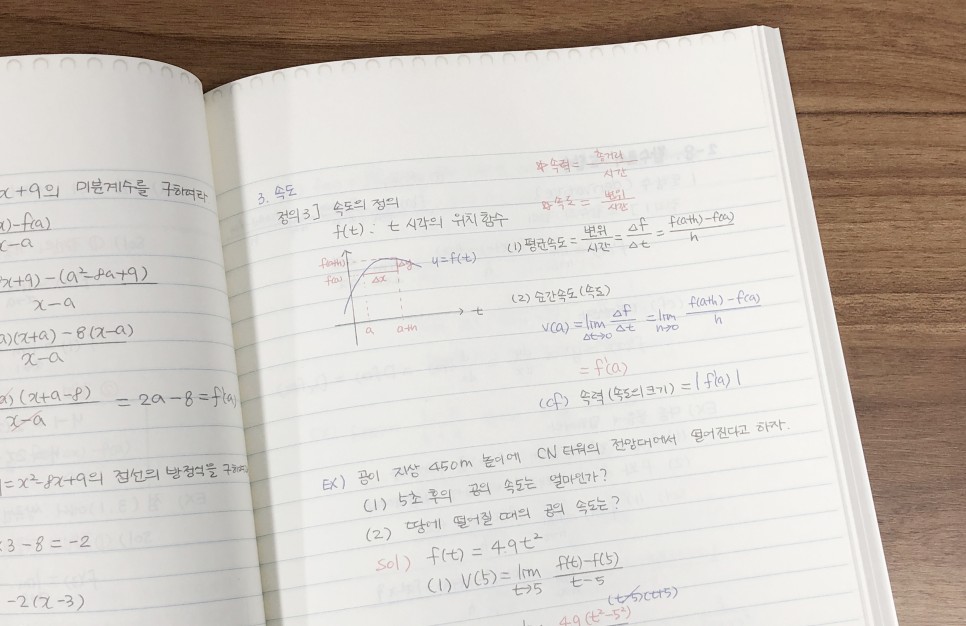 x+9의 미분계수를 구하여라
x)-f(a)
x-a
8x+9)-(a²-8a+9)
x-a
a)(x+a)-8(x-a)
x-a
a)(x+a-8)
x-a
= 2a-8 = f'(a)
= x²-8x+9의 접선의 방정식을 구하여
3-8 = -2
-2(x-3)
3. 속도
정의3] 속도의 정의
f(t): t 시각의 위치함수
☆속력 = 총거리/시간
☆속도 = 변위/시간
f(a+h)
f(a)
Δx
Δy
y=f(t)
t
a
a+h
(1) 평균속도 = 변위/시간 = Δf/Δt = f(a+h)-f(a)/h
(2) 순간속도(속도)
V(a) = lim Δt→0 Δf/Δt = lim h→0 f(a+h)-f(a)/h
= f'(a)
(cf) 속력(속도의크기) = |f'(a)|
EX) 공이 지상 450m 높이에 CN 타워의 전망대에서 떨어진다고 하자.
(1) 5초 후의 공의 속도는 얼마인가?
(2) 땅에 떨어질 때의 공의 속도는?
Sol) f(t) = 4.9t²
(1) V(5) = lim t→5 f(t)-f(5)/t-5
(t-5)(t+5)
4.9(t²-5²)